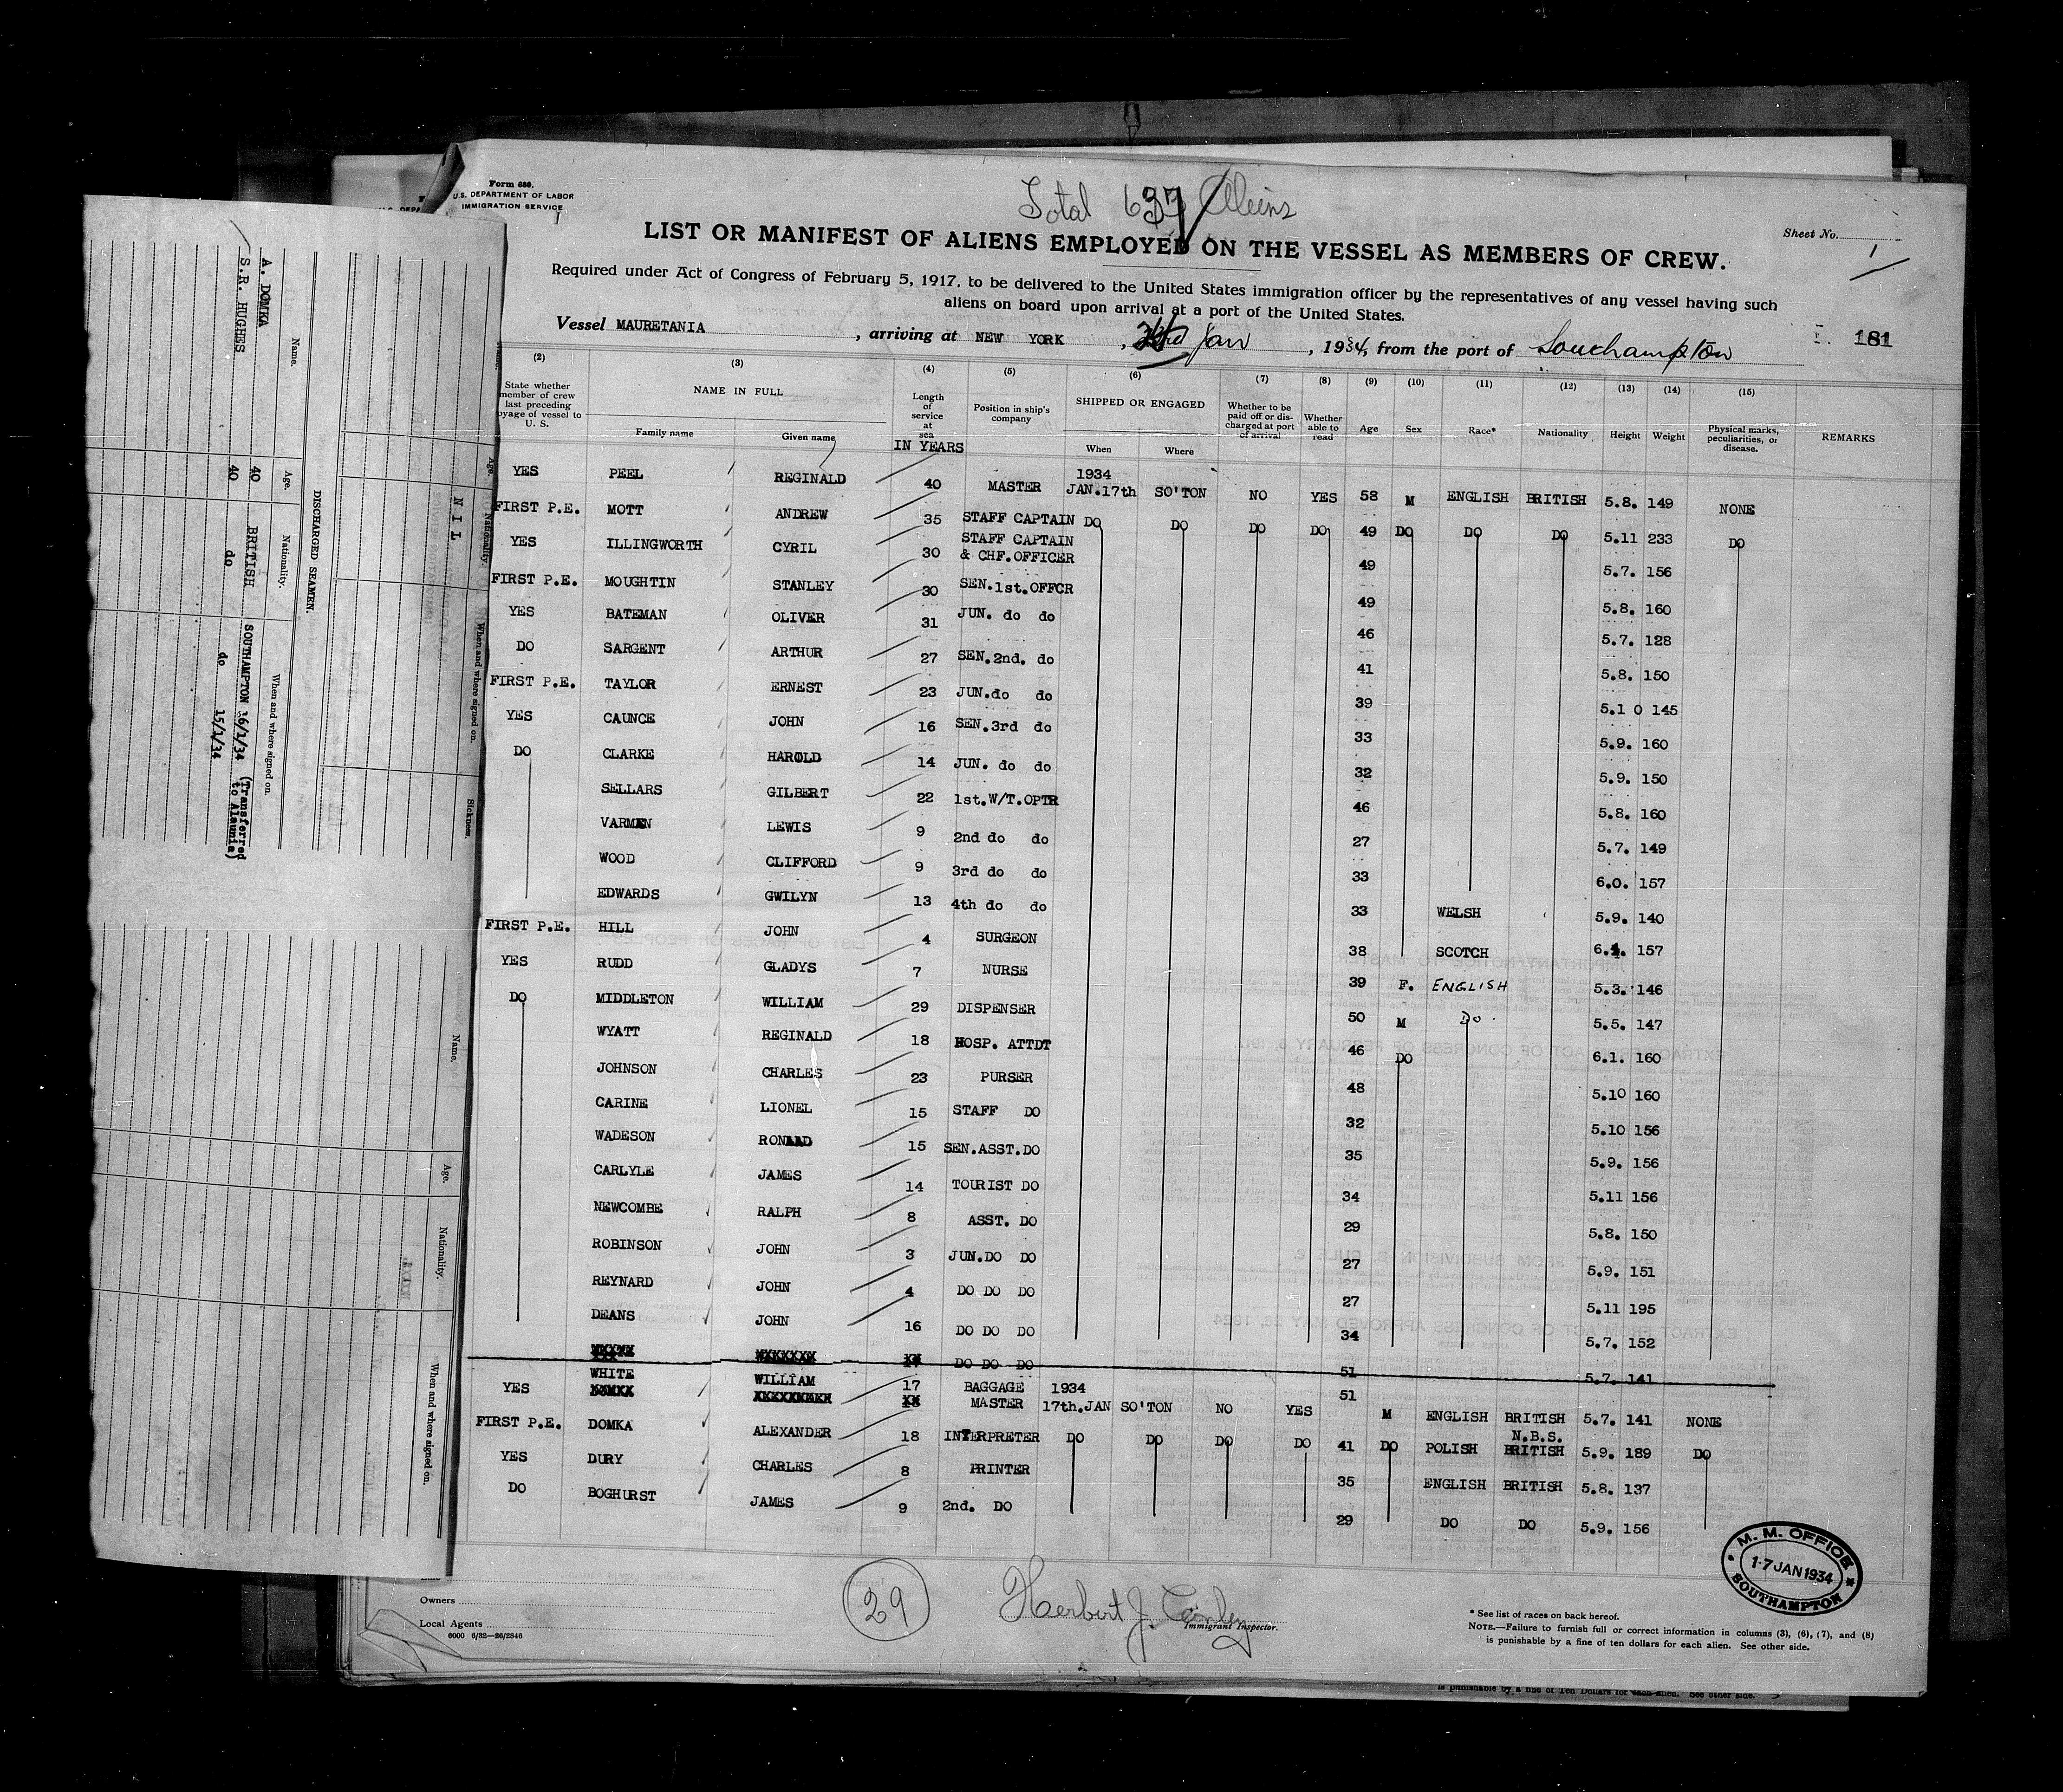 Form 680.
U.S. DEPARTMENT OF LABOR
IMMIGRATION SERVICE
Total 637 Aliens
Sheet No. 1
LIST OR MANIFEST OF ALIENS EMPLOYED ON THE VESSEL AS MEMBERS OF CREW.
Required under Act of Congress of February 5, 1917, to be delivered to the United States immigration officer by the representatives of any vessel having such
aliens on board upon arrival at a port of the United States.
Vessel MAURETANIA, arriving at NEW YORK, Jan, 1934, from the port of Southampton
181
(2) (3) (4) (5) (6) (7) (8) (9) (10) (11) (12) (13) (14) (15)
State whether member of crew last preceding voyage of vessel to U. S. NAME IN FULL Family name Given name Length of service at sea IN YEARS Position in ship's company SHIPPED OR ENGAGED When Where Whether to be paid off or discharged at port of arrival Whether able to read Age Sex Race* Nationality Height Weight Physical marks, peculiarities, or disease. REMARKS
YES PEEL REGINALD 40 MASTER 1934 JAN.17th SO'TON NO YES 58 M ENGLISH BRITISH 5.8. 149 NONE
FIRST P.E. MOTT ANDREW 35 STAFF CAPTAIN DO DO DO DO 49 DO DO DO 5.11 233 DO
YES ILLINGWORTH CYRIL 30 STAFF CAPTAIN & CHF.OFFICER 49 5.7. 156
FIRST P.E. MOUGHTIN STANLEY 30 SEN.1st.OFFCR 49 5.8. 160
YES BATEMAN OLIVER 31 JUN. do do 46 5.7. 128
DO SARGENT ARTHUR 27 SEN.2nd. do 41 5.8. 150
FIRST P.E. TAYLOR ERNEST 23 JUN.do do 39 5.1 0 145
YES CAUNCE JOHN 16 SEN.3rd do 33 5.9. 160
DO CLARKE HAROLD 14 JUN. do do 32 5.9. 150
SELLARS GILBERT 22 1st.W/T.OPTR 46 5.8. 160
VARMEN LEWIS 9 2nd do do 27 5.7. 149
WOOD CLIFFORD 9 3rd do do 33 6.0. 157
EDWARDS GWILYN 13 4th do do 33 WELSH 5.9. 140
FIRST P.E. HILL JOHN 4 SURGEON 38 SCOTCH 6.1. 157
YES RUDD GLADYS 7 NURSE 39 F. ENGLISH 5.3. 146
DO MIDDLETON WILLIAM 29 DISPENSER 50 M DO 5.5. 147
WYATT REGINALD 18 HOSP. ATTDT 46 DO 6.1. 160
JOHNSON CHARLES 23 PURSER 48 5.10 160
CARINE LIONEL 15 STAFF DO 32 5.10 156
WADESON RONALD 15 SEN.ASST.DO 35 5.9. 156
CARLYLE JAMES 14 TOURIST DO 34 5.11 156
NEWCOMBE RALPH 8 ASST. DO 29 5.8. 150
ROBINSON JOHN 3 JUN.DO DO 27 5.9. 151
REYNARD JOHN 4 DO DO DO 27 5.11 195
DEANS JOHN 16 DO DO DO 34 5.7. 152
DO DO DO 51 5.7. 141
YES WHITE WILLIAM 17 BAGGAGE MASTER 1934 17th.JAN SO'TON NO YES 51 M ENGLISH BRITISH 5.7. 141 NONE
FIRST P.E. DOMKA ALEXANDER 18 INTERPRETER DO DO DO DO 41 DO POLISH N.B.S. BRITISH 5.9. 189 DO
YES DURY CHARLES 8 PRINTER 35 ENGLISH BRITISH 5.8. 137
DO BOGHURST JAMES 9 2nd. DO 29 DO DO 5.9. 156
Owners
Local Agents
6000 6/32—26/2846
29
Immigrant Inspector.
* See list of races on back hereof.
NOTE.—Failure to furnish full or correct information in columns (3), (6), (7), and (8)
is punishable by a fine of ten dollars for each alien. See other side.
M. M. OFFICE
17 JAN 1934
SOUTHAMPTON
is punishable by a fine of Ten Dollars for each alien. See other side.
DISCHARGED SEAMEN.
Name. Age. Nationality. When and where signed on.
A. DOMKA 40 BRITISH SOUTHAMPTON 16/1/34 (Transferred to Alaunia)
S.R. HUGHES 40 do do 15/1/34
Age. Nationality. When and where signed on. Sickness.
N I L
Name. Age. Nationality. When and where signed on.